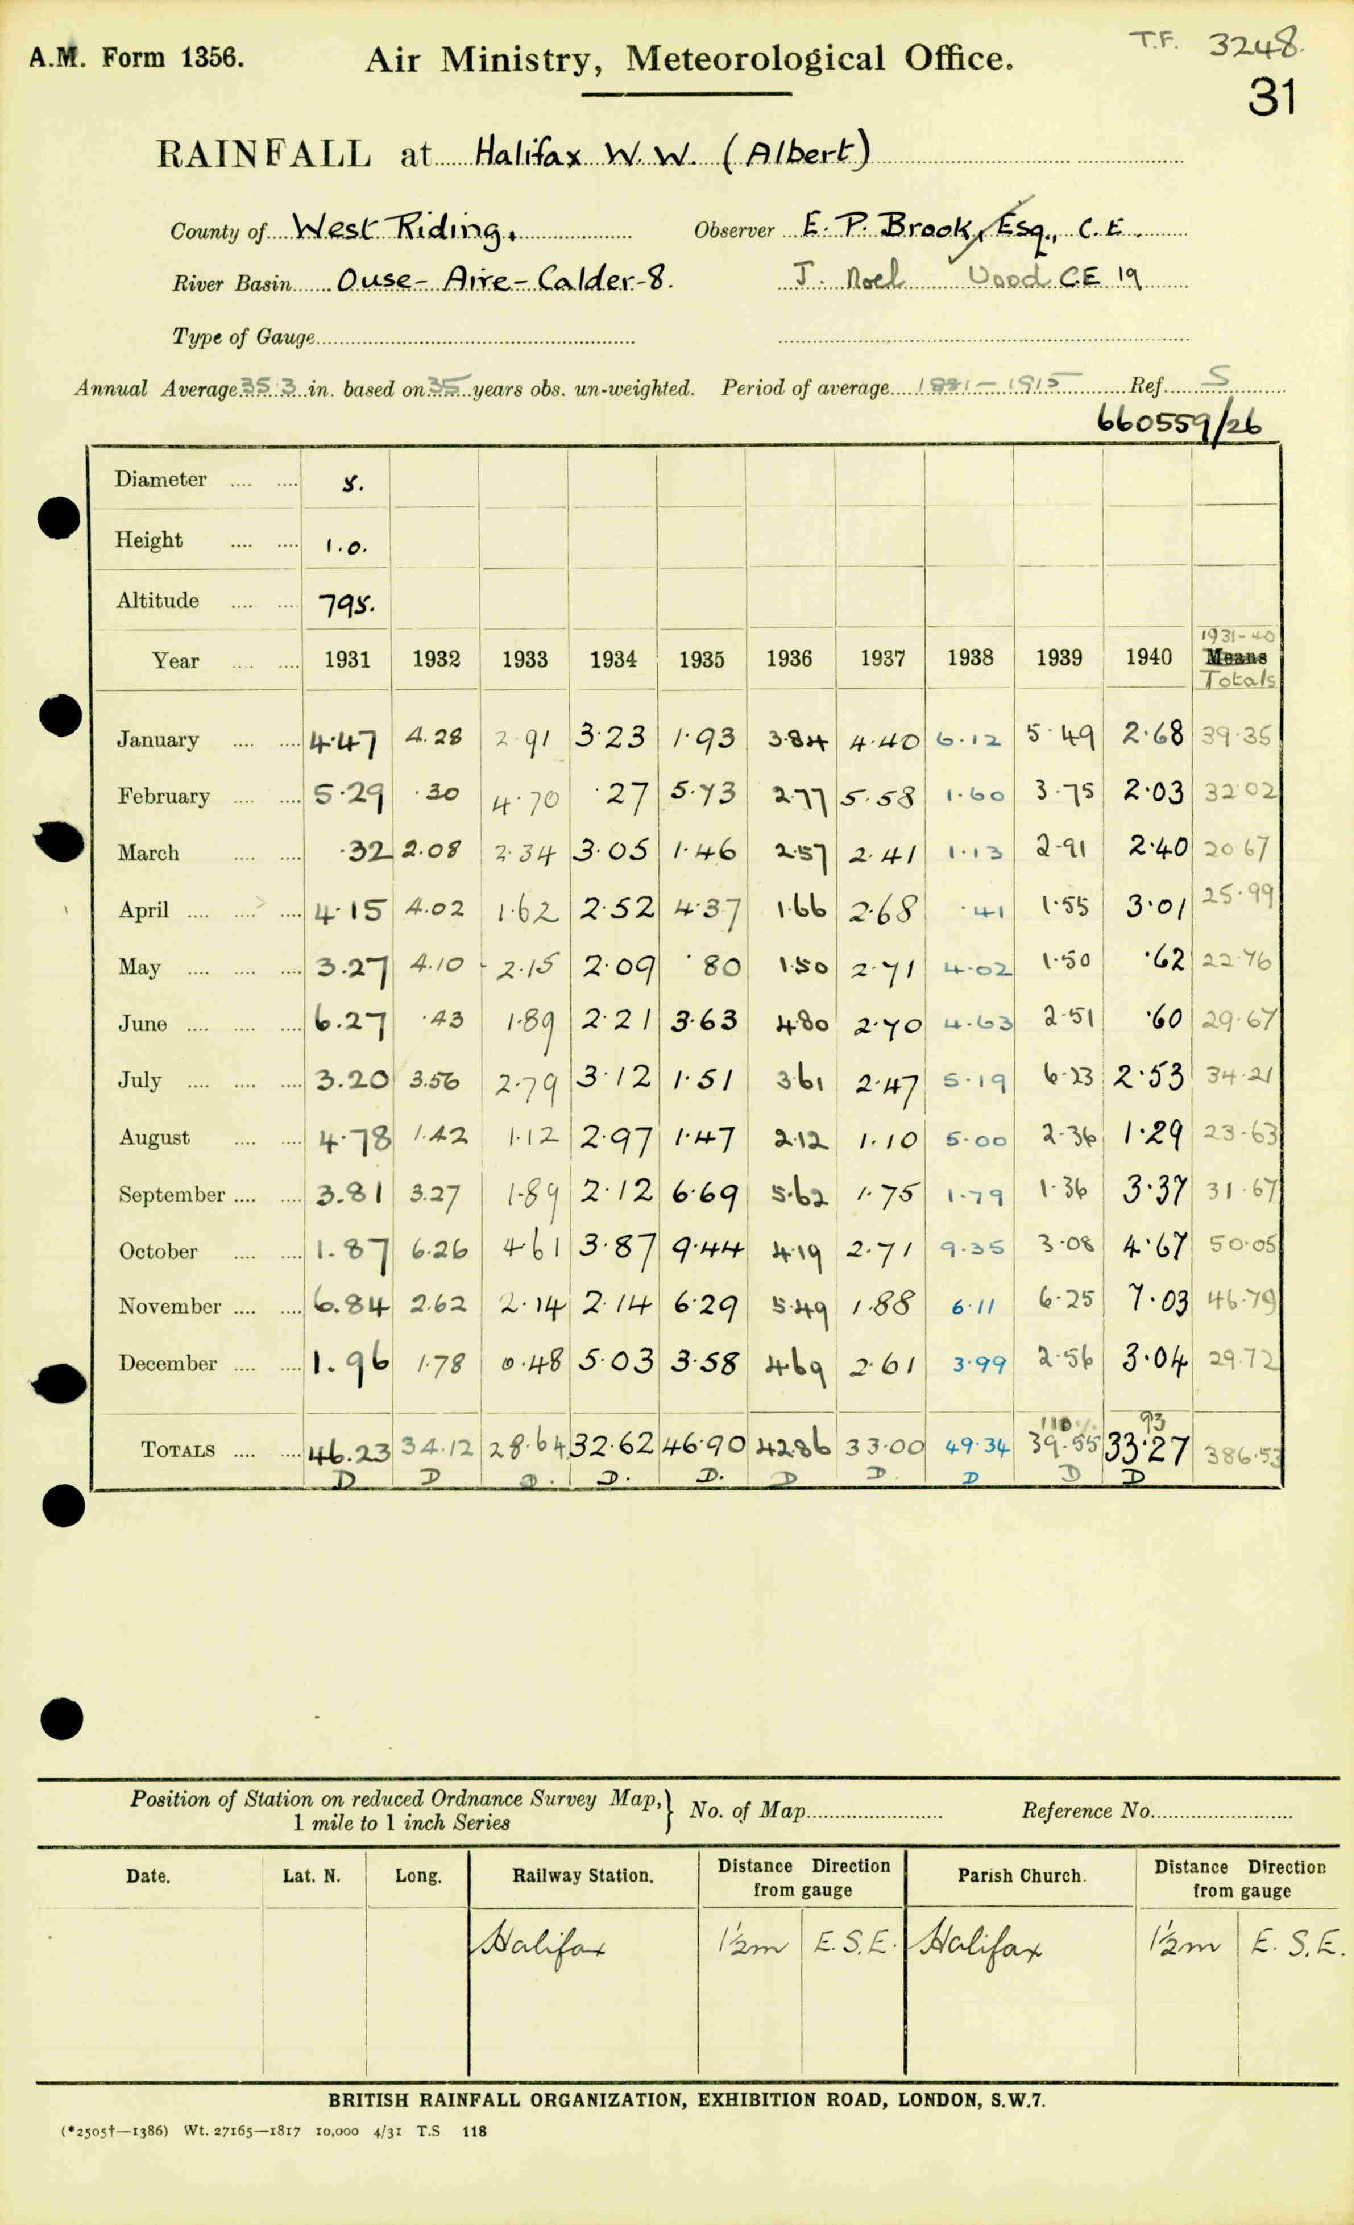 T.F. 3248.
A.M. Form 1356. Air Ministry, Meteorological Office.
31
RAINFALL at Halifax W. W. (Albert)
County of West Riding. Observer E. P. Brook, Esq., C.E.
River Basin Ouse - Aire - Calder - 8. J. Noel Wood C.E 19
Type of Gauge
Annual Average 35.3 in. based on 35 years obs. un-weighted. Period of average 1881 - 1915 Ref. S
660559/26
Diameter 5.
Height 1.0.
Altitude 795.
1931-40
Year 1931 1932 1933 1934 1935 1936 1937 1938 1939 1940 Means
Totals
January 4.47 4.28 2.91 3.23 1.93 3.84 4.40 6.12 5.49 2.68 39.35
February 5.29 .30 4.70 .27 5.73 2.77 5.58 1.60 3.75 2.03 32.02
March .32 2.08 2.34 3.05 1.46 2.57 2.41 1.13 2.91 2.40 20.67
April 4.15 4.02 1.62 2.52 4.37 1.66 2.68 .41 1.55 3.01 25.99
May 3.27 4.10 2.15 2.09 .80 1.50 2.71 4.02 1.50 .62 22.76
June 6.27 .43 1.89 2.21 3.63 4.80 2.70 4.63 2.51 .60 29.67
July 3.20 3.56 2.79 3.12 1.51 3.61 2.47 5.19 6.23 2.53 34.21
August 4.78 1.42 1.12 2.97 1.47 2.12 1.10 5.00 2.36 1.29 23.63
September 3.81 3.27 1.89 2.12 6.69 5.62 1.75 1.79 1.36 3.37 31.67
October 1.87 6.26 4.61 3.87 9.44 4.19 2.71 9.35 3.08 4.67 50.05
November 6.84 2.62 2.14 2.14 6.29 5.49 1.88 6.11 6.25 7.03 46.79
December 1.96 1.78 0.48 5.03 3.58 4.69 2.61 3.99 2.56 3.04 29.72
110% 93
TOTALS 46.23 34.12 28.64 32.62 46.90 42.86 33.00 49.34 39.55 33.27 386.53
D D D. D. D. D D. D D D
Position of Station on reduced Ordnance Survey Map, } No. of Map Reference No.
1 mile to 1 inch Series
Date. Lat. N. Long. Railway Station. Distance Direction from gauge Parish Church. Distance Direction from gauge
Halifax 1½m E.S.E. Halifax 1½m E.S.E.
BRITISH RAINFALL ORGANIZATION, EXHIBITION ROAD, LONDON, S.W.7.
(*2505†—1386) Wt. 27165—1817 10,000 4/31 T.S. 118